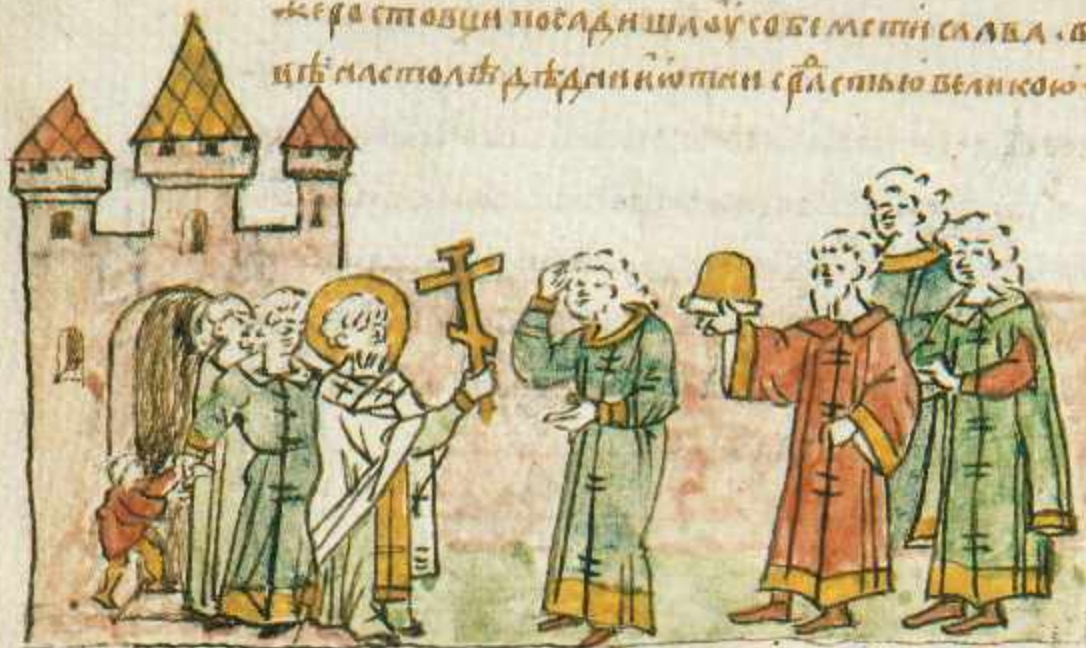 жеростовци посадишаоу собемстислава · в
цѣ настолѣ дѣднии ѡтни срⷣастью великою